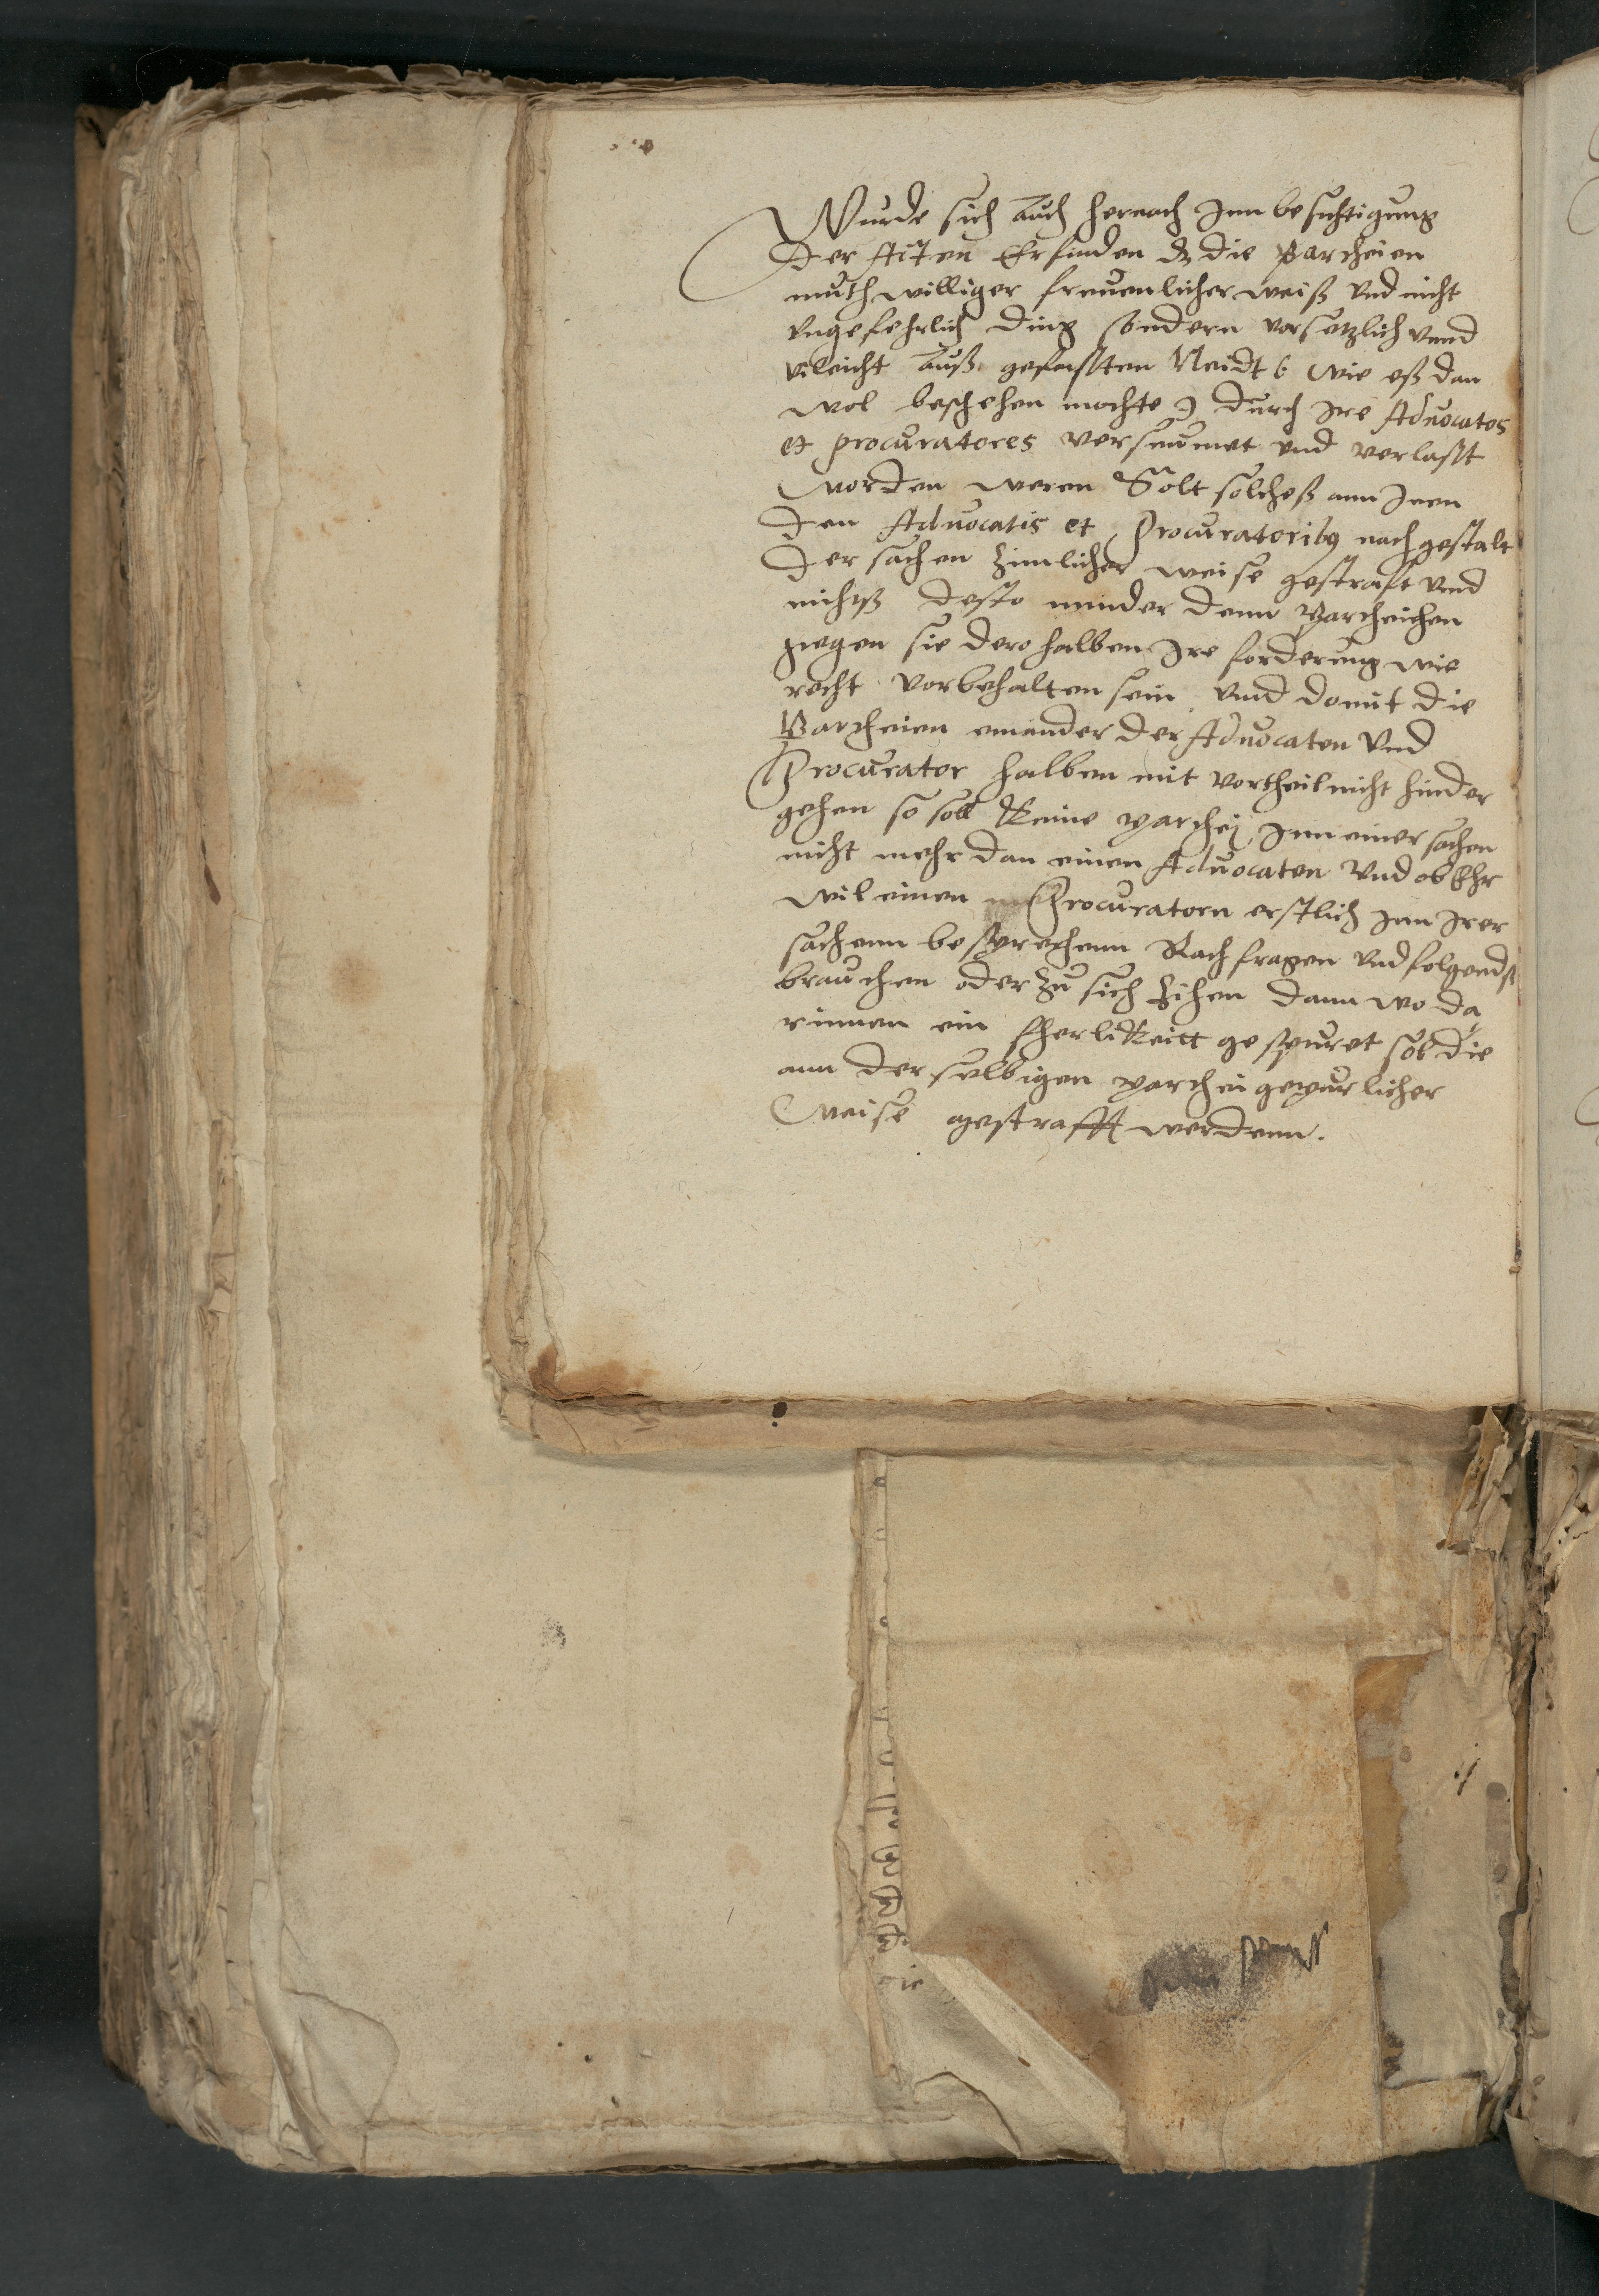 Wurde sich auch hernach Inn besichtigung
der Acten Erfinden dz die Parcheien
muthwilliger freuenlicher weiß vnd nicht
vngefehrlich ding sondern vorsetzlich vnnd
vileicht auß gefasten Neidt ( wie eß dan
wol beschehen mochte ) durch Ire Aduocatos
et procuratores verseumet vnd verlast
worden weren Solt solcheß ann Inen
den Aduocatis et Procuratoribg nach gestalt
der sachen zimlicher weise gestraft vnd
nichtß desto minder denn Parcheichen
gegen sie derohalben Ire forderung wie
recht vorbehalten sein vnd domit die
Parcheien einander der Aduocaten vnd
Procurator halben mit vortheil nicht hinder
gehen so soll keine parchej Inn einer sachen
nicht mehr dan einen Aduocaten vnd ob Ehr
wil einen Procuratorn erstlich Inn Irer
sachenn besprechenn Rach fragen vnd folgendß
brauchen oder zu sich zihen dann wo da
rinnen ein fherlikeitt gespuret sol die
ann derselbigen parchei gepurlicher
Weise gestrafft werdenn.
ie